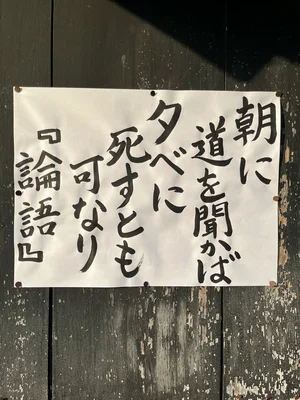 朝に
道を聞かば
夕べに
死すとも
可なり
『論語』